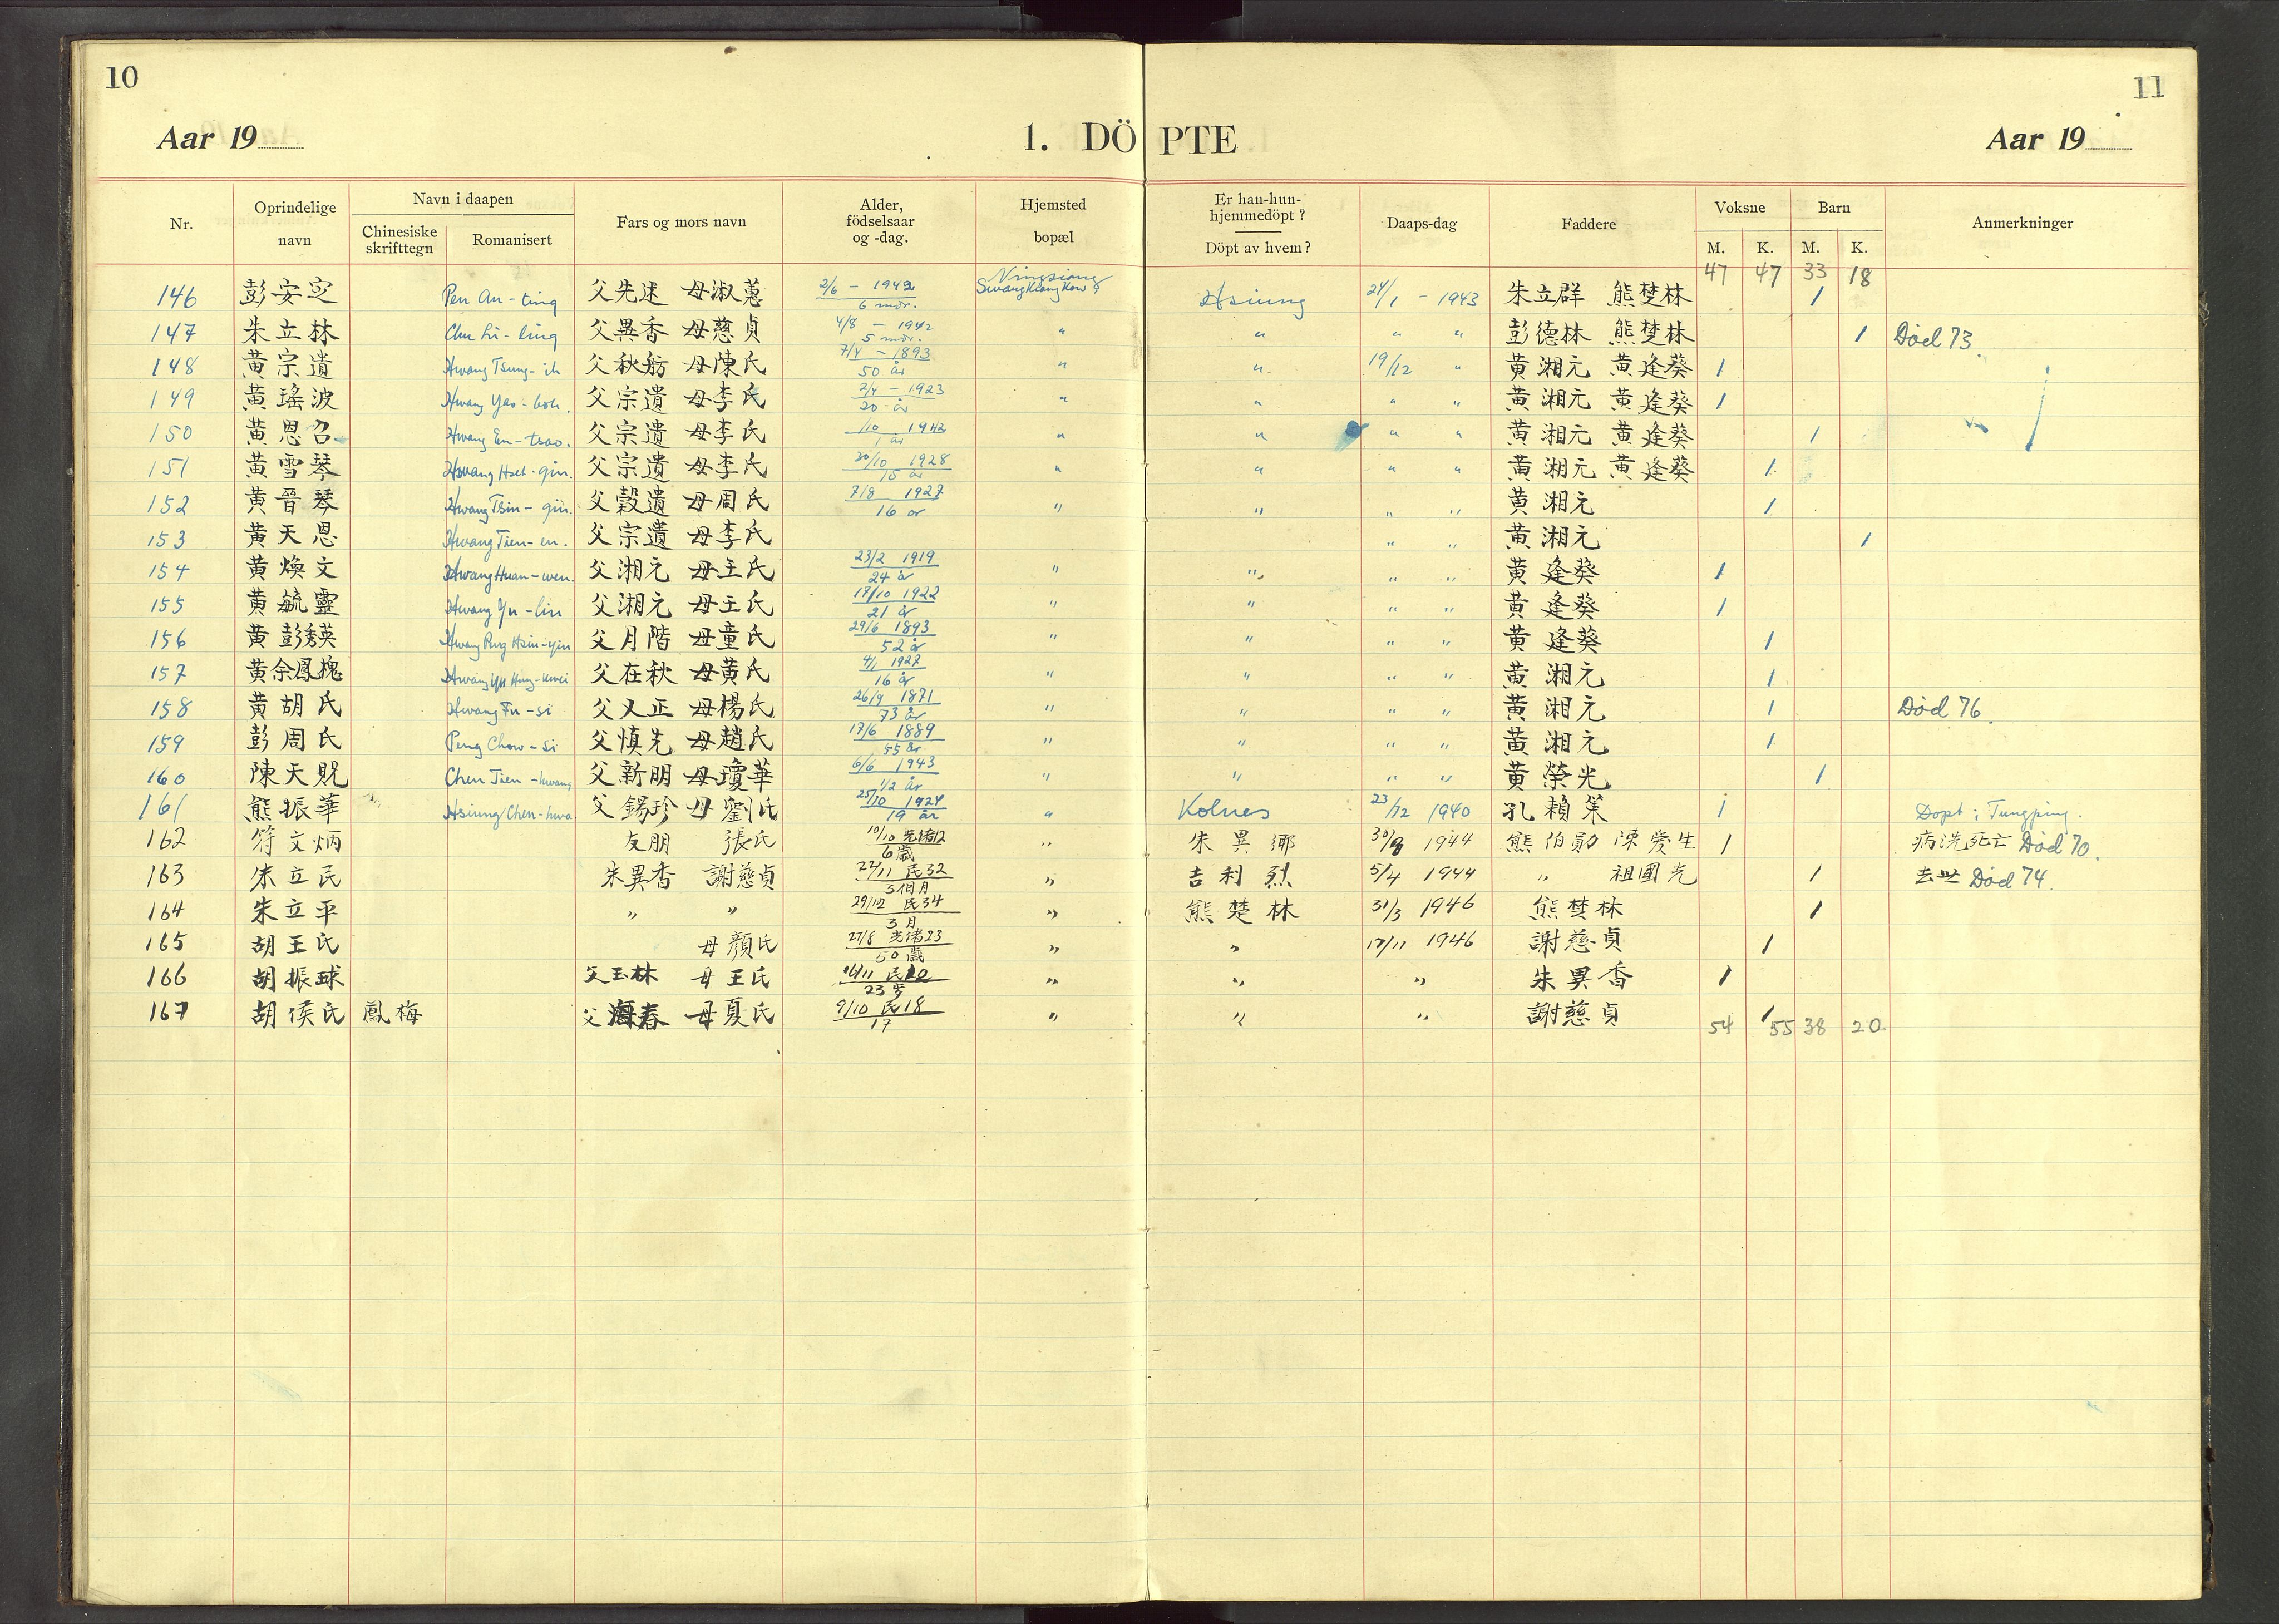 10
11
Aar 19
1. DÖPTE
Aar 19
Nr.
Oprindelige navn
Navn i daapen
Chinesiske skrifttegn
Romanisert
Fars og mors navn
Alder, födselsaar og -dag.
Hjemsted bopæl
Er han-hun-hjemmedöpt?
Döpt av hvem?
Daaps-dag
Faddere
Voksne
M. K.
Barn
M. K.
Anmerkninger
47 47 33 18
146 彭安定 Pen An-ting 父先述 母淑蕙 2/6 - 1942 6 mdr. Ningsiang Hsiung 24/1 - 1943 朱立群 熊楚林 1
147 朱立林 Chu Li-ling 父異香 母慈貞 4/8 - 1942 5 mdr. " " " " 彭德林 熊楚林 1 Død 73
148 黄宗遺 Hwang Tsung-ih 父秋舫 母陳氏 7/4 - 1893 50 år " " 19/12 " 黄湘元 黄逢葵 1
149 黄瑤波 Hwang Yao-boh. 父宗遺 母李氏 2/4 - 1923 20 år " " " " 黄湘元 黄逢葵 1
150 黄恩召 Hwang En-tsao. 父宗遺 母李氏 /10 1942 1 år " " " " 黄湘元 黄逢葵 1
151 黄雪琴 Hwang Hset-gin. 父宗遺 母李氏 30/10 1928 15 år " " " " 黄湘元 黄逢葵 1
152 黄晉琴 Hwang Tsin-gin. 父穀遺 母周氏 7/8 1927 16 år " " " " 黄湘元 1
153 黄天恩 Hwang Tien-en. 父宗遺 母李氏 " " 黄湘元 1
154 黄煥文 Hwang Huan-wen. 父湘元 母王氏 23/2 1919 24 år " " " " 黄逢葵 1
155 黄毓靈 Hwang Yu-lin 父湘元 母王氏 17/10 1922 21 år " " " " 黄逢葵 1
156 黄彭秀英 Hwang Peng Hsin-yin 父月階 母童氏 29/6 1893 52 år " " " " 黄逢葵 1
157 黄余鳳槐 父在秋 母黄氏 4/1 1927 16 år " " " " 黄湘元 1
158 黄胡氏 Hwang Fu-si 父又正 母楊氏 26/9 1871 73 år " " " " 黄湘元 1 Død 76.
159 彭周氏 Peng Chow-si 父慎先 母趙氏 17/6 1889 55 år " " " " 黄湘元 1
160 陳天貺 Chen Tien-kwang 父新明 母瓊華 6/6 1943 1/2 år " " " " 黄榮光 1
161 熊振華 Hsiung Chen-hwa 父錫珍 母劉氏 25/10 1924 19 år " Kolnes 23/12 1940 孔賴策 1 Døpt i Tungping.
162 符文炳 友朋 張氏 10/10 光緒12 6 歲 " 朱異鄉 30/8 1944 熊伯勛 陳愛生 1 病洗死亡 Død 70.
163 朱立民 朱異香 謝慈貞 22/11 民32 3個月 " 吉利烈 5/4 1944 " 祖國光 1 去世 Død 74.
164 朱立平 " " 29/12 民34 3月 " 熊楚林 31/3 1946 熊楚林 1
165 胡王氏 母顏氏 27/8 光緒23 50歲 " " 17/11 1946 謝慈貞 1
166 胡振球 父玉林 母王氏 16/11 23岁 " " " 朱異香 1
167 胡侯氏 鳳梅 父海春 母夏氏 9/10 民18 17 " " " 謝慈貞 1
54 55 38 20